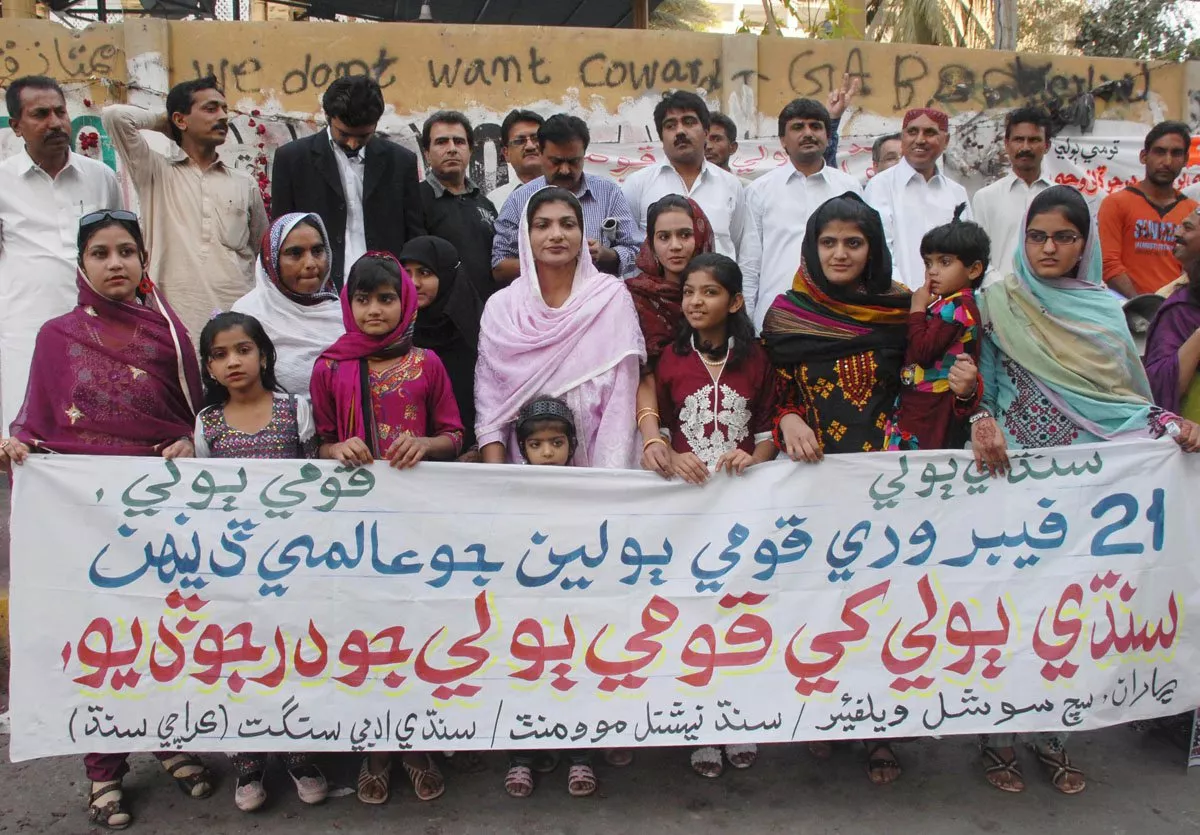 We dont want Coward
قومي ٻولي
سنڌي ٻولي
قومي ٻولي،
21 فيبروري قومي ٻولين جو عالمي ڏينهن
سنڌي ٻولي کي قومي ٻولي جو درجو ڏيو.
سچ سوشل ويلفيئر / سنڌ نيشنل موومنٽ / سنڌي ادبي سنگت (ڪراچي سنڌ)